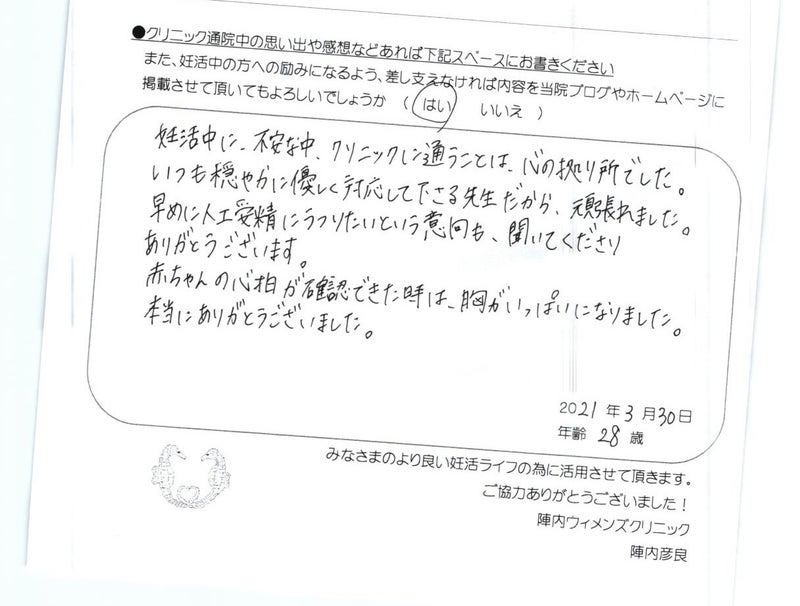 ●クリニック通院中の思い出や感想などあれば下記スペースにお書きください
また、妊活中の方への励みになるよう、差し支えなければ内容を当院ブログやホームページに
掲載させて頂いてもよろしいでしょうか （ はい　　いいえ ）
妊活中に、不安な中、クリニックに通うことは、心の拠り所でした。
いつも穏やかに優しく対応して下さる先生だから、頑張れました。
早めに人工受精にうつりたいという意向も、聞いてくださり
ありがとうございます。
赤ちゃんの心拍が確認できた時は、胸がいっぱいになりました。
本当にありがとうございました。
2021 年 3 月 30 日
年齢 28 歳
みなさまのより良い妊活ライフの為に活用させて頂きます。
ご協力ありがとうございました！
陣内ウィメンズクリニック
陣内彦良